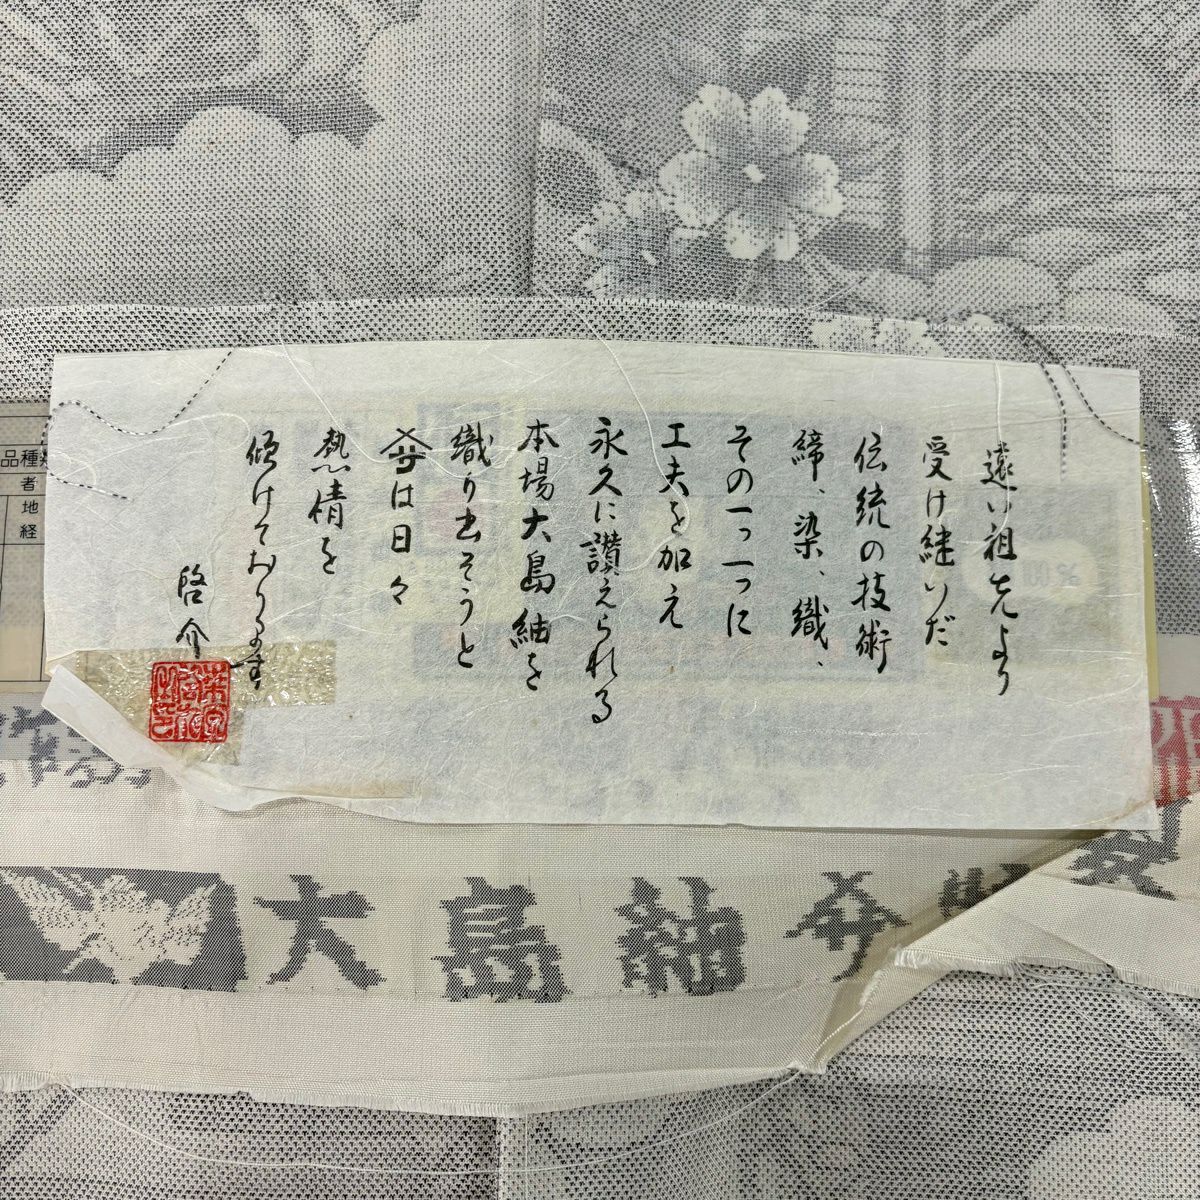 遠い祖先より
受け継いだ
伝統の技術
締、染、織、
その一つ一つに
工夫を加え
永久に讃えられる
本場大島紬を
織り出そうと
は日々
熱情を
傾けております
啓介
品種
者
地
経
%
大島紬